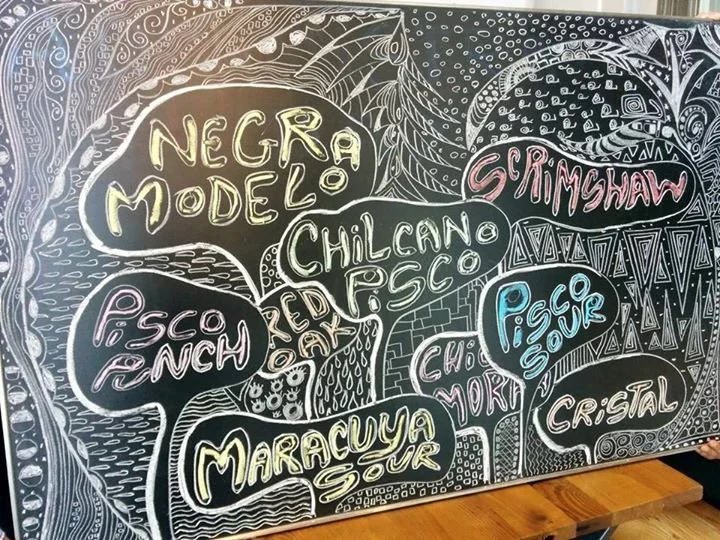 NEGRA
MODELO
SCRIMSHAW
CHILCANO
PISCO
PISCO
PUNCH
RED
OAK
PISCO
SOUR
CRISTAL
MARACUYA
SOUR